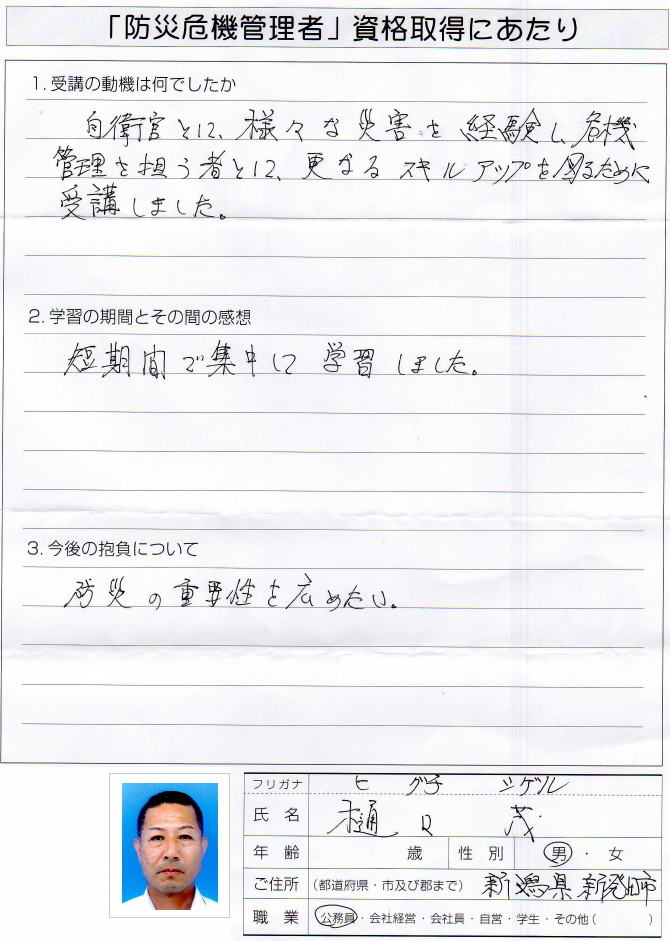 「防災危機管理者」資格取得にあたり
1. 受講の動機は何でしたか
自衛官とし、様々な災害を経験し危機
管理を担う者とし、更なるスキルアップを図るために
受講しました。
2. 学習の期間とその間の感想
短期間で集中して学習しました。
3. 今後の抱負について
防災の重要性を広めたい。
フリガナ ヒグチ シゲル
氏名 樋口 茂
年齢 歳 性別 男・女
ご住所 (都道府県・市及び郡まで) 新潟県新発田市
職業 公務員・会社経営・会社員・自営・学生・その他( )